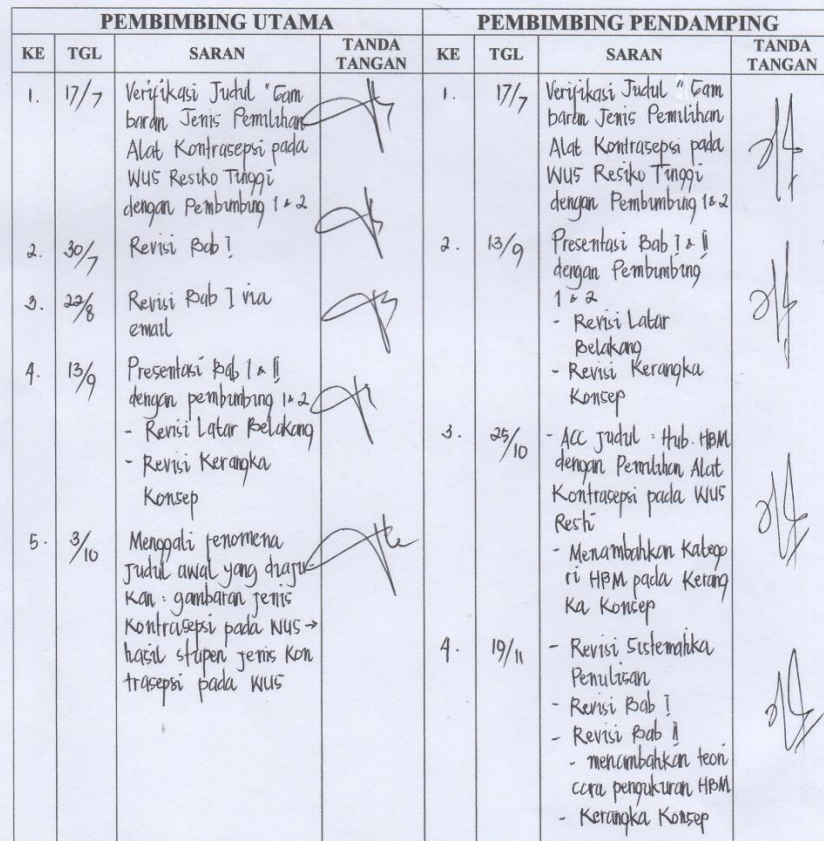 PEMBIMBING UTAMA
KE TGL SARAN TANDA TANGAN
1. 17/7 Verifikasi Judul "Gam
baran Jenis Pemilihan
Alat Kontrasepsi pada
WUS Resiko Tinggi
dengan Pembimbing 1 & 2
2. 30/7 Revisi Bab I
3. 22/8 Revisi Bab I via
email
4. 13/9 Presentasi Bab I & II
dengan pembimbing 1 & 2
- Revisi Latar Belakang
- Revisi Kerangka
Konsep
5. 3/10 Menggali fenomena
Judul awal yang diaju-
kan : gambaran jenis
Kontrasepsi pada WUS →
hasil stupen jenis kon
trasepsi pada WUS
PEMBIMBING PENDAMPING
KE TGL SARAN TANDA TANGAN
1. 17/7 Verifikasi Judul " Gam
baran Jenis Pemilihan
Alat Kontrasepsi pada
WUS Resiko Tinggi
dengan Pembimbing 1 & 2
2. 13/9 Presentasi Bab I & II
dengan Pembimbing
1 & 2
- Revisi Latar
Belakang
- Revisi Kerangka
Konsep
3. 25/10 - ACC Judul : Hub. HBM
dengan Pemilihan Alat
Kontrasepsi pada WUS
Resti
- Menambahkan Katego
ri HBM pada Kerang
ka Konsep
4. 19/11 - Revisi Sistematika
Penulisan
- Revisi Bab I
- Revisi Bab II
- menambahkan teori
cara pengukuran HBM
- Kerangka Konsep